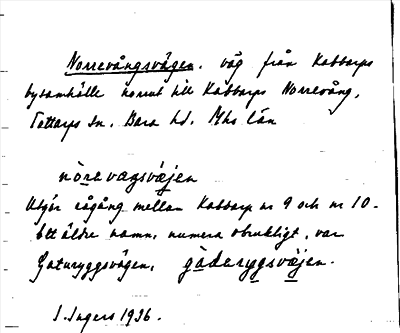 Norrevångsvägen. väg från Kabbarps
bysamhälle norrut till Kabbarps Norrevång,
Tottarps sn. Bara hd. Mhs län
nörevaŋsväjen
Utgör rågång mellan Kabbarp nr 9 och nr 10.
Ett äldre namn, numera obrukligt, var
Gaturyggsvägen, gåderygsväjen.
I. Ingers 1926.